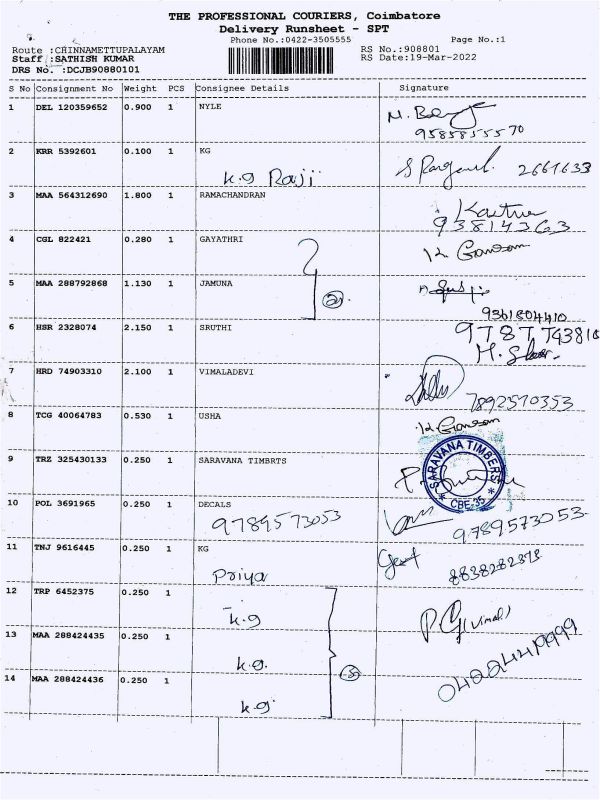 THE PROFESSIONAL COURIERS, Coimbatore
Delivery Runsheet - SPT
Phone No.:0422-3505555 Page No.:1
Route :CHINNAMETTUPALAYAM RS No.:908801
Staff :SATHISH KUMAR RS Date:19-Mar-2022
DRS No. :DCJB90880101
S No Consignment No Weight PCS Consignee Details Signature
1 DEL 120359652 0.900 1 NYLE
9585855570
2 KRR 5392601 0.100 1 KG
K.g Raji 2661633
3 MAA 564312690 1.800 1 RAMACHANDRAN
938147363
4 CGL 822421 0.280 1 GAYATHRI
5 MAA 288792868 1.130 1 JAMUNA
9361804410
6 HSR 2328074 2.150 1 SRUTHI
9787743810
7 HRD 74903310 2.100 1 VIMALADEVI
7892570353
8 TCG 40064783 0.530 1 USHA
9 TRZ 325430133 0.250 1 SARAVANA TIMBRTS
SARAVANA TIMBERS
CBE-35
10 POL 3691965 0.250 1 DECALS
9789573053 9789573053
11 TNJ 9616445 0.250 1 KG
Priya 8838282378
12 TRP 6452375 0.250 1
k.g
13 MAA 288424435 0.250 1
k.g.
14 MAA 288424436 0.250 1
k.g